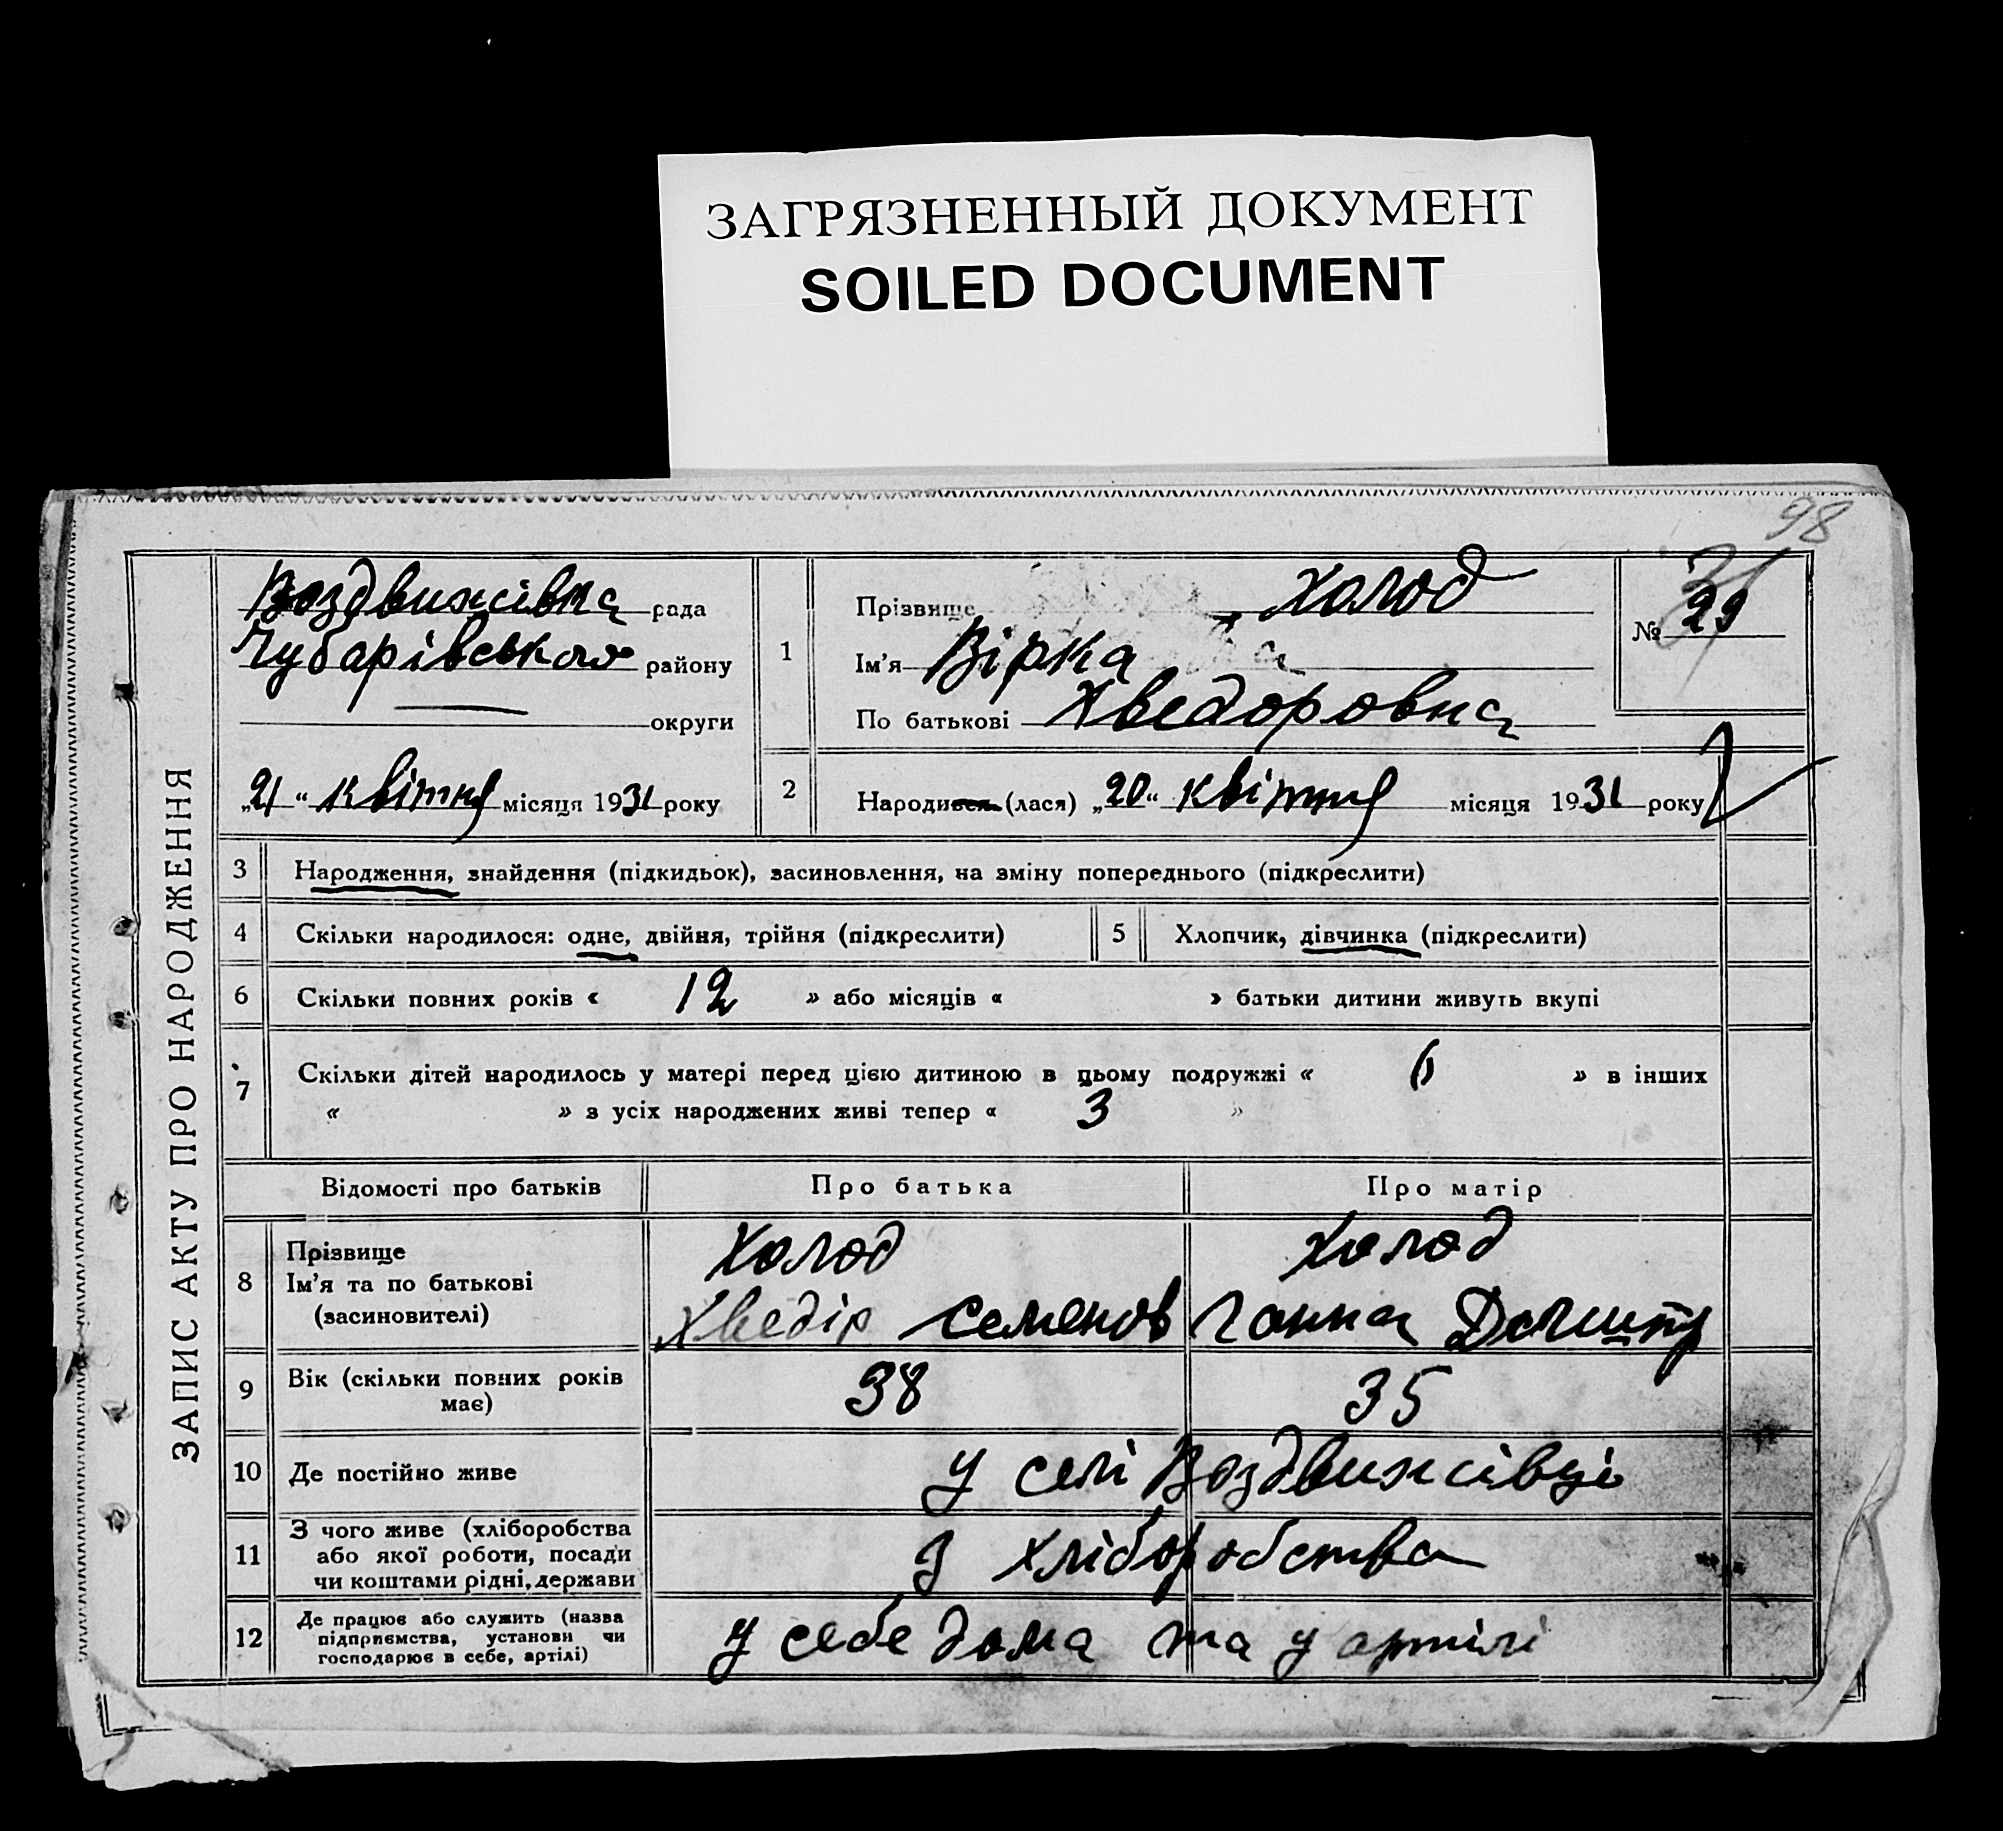 ЗАГРЯЗНЕННЫЙ ДОКУМЕНТ
SOILED DOCUMENT
98
ЗАПИС АКТУ ПРО НАРОДЖЕННЯ
Воздвижівка рада
Чубарівського району
округи
„21“ квітня місяця 1931 року
1
Прізвище Холод
Ім'я Вірка
По батькові Хведоровна
№ 29
31
2
Народився (лася) „20“ квітня місяця 1931 року
3 Народження, знайдення (підкидьок), засиновлення, на зміну попереднього (підкреслити)
4 Скільки народилося: одне, двійня, трійня (підкреслити)
5 Хлопчик, дівчинка (підкреслити)
6 Скільки повних років « 12 » або місяців « » батьки дитини живуть вкупі
7 Скільки дітей народилось у матері перед цією дитиною в цьому подружжі « 6 » в інших
« » з усіх народжених живі тепер « 3 »
Відомості про батьків Про батька Про матір
8
Прізвище
Ім'я та по батькові
(засиновителі)
Холод
Хведір Семенов
Холод
Ганна Дмитр
9
Вік (скільки повних років
має)
38 35
10 Де постійно живе у селі Воздвижівці
11
З чого живе (хліборобства
або якої роботи, посади
чи коштами рідні, держави
З хліборобства
12
Де працює або служить (назва
підприємства, установи чи
господарює в себе, артілі)
у себе дома та у артілі